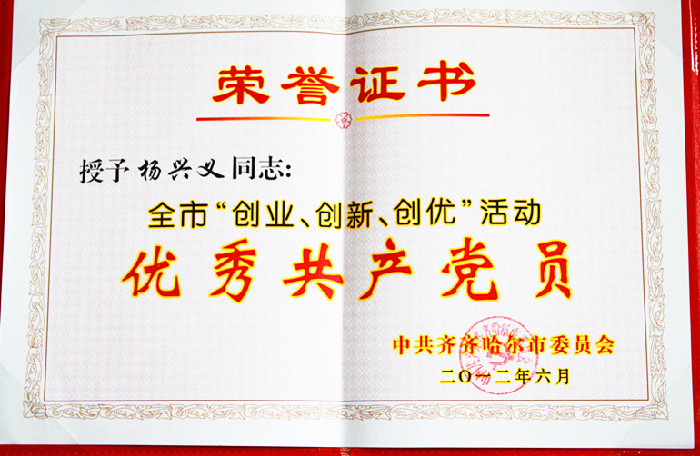 荣誉证书
授予杨兴义同志:
全市“创业、创新、创优”活动
优秀共产党员
中共齐齐哈尔市委员会
二〇一二年六月